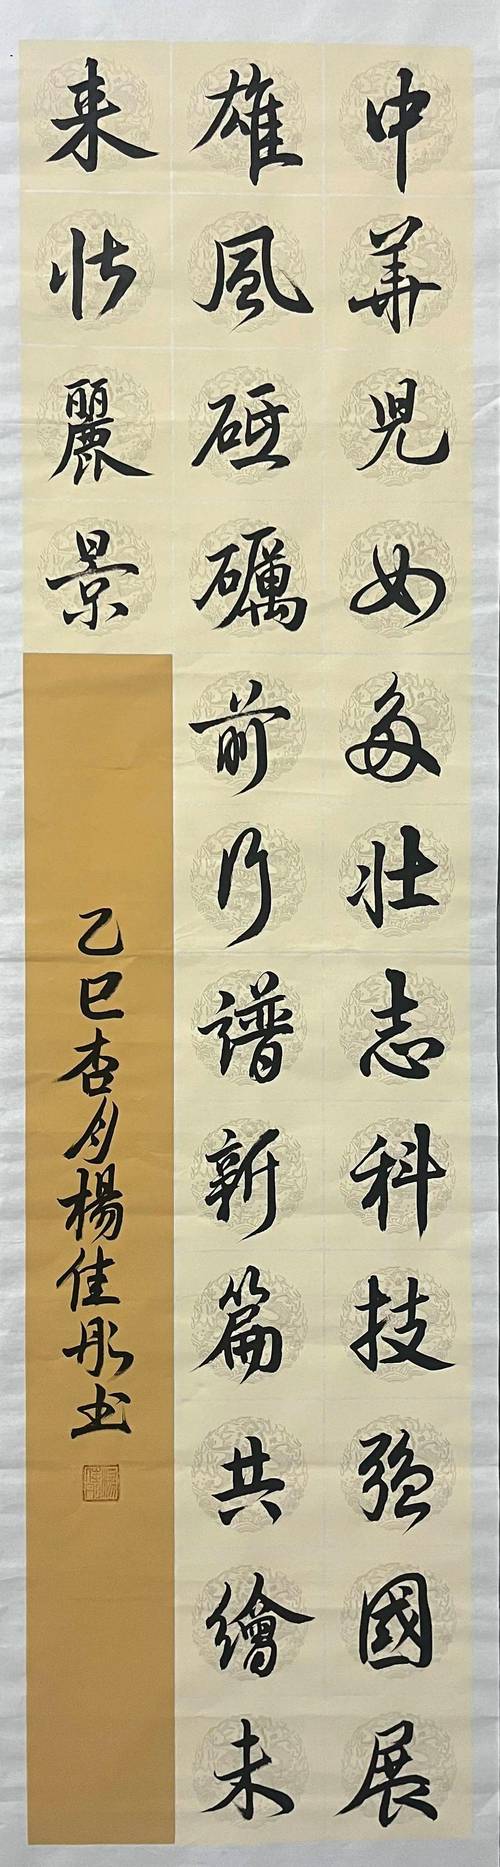 中華児女多壮志科技强國展
雄風砥礪前行譜新篇共繪未
来壮麗景
乙巳杏月楊佳彤书